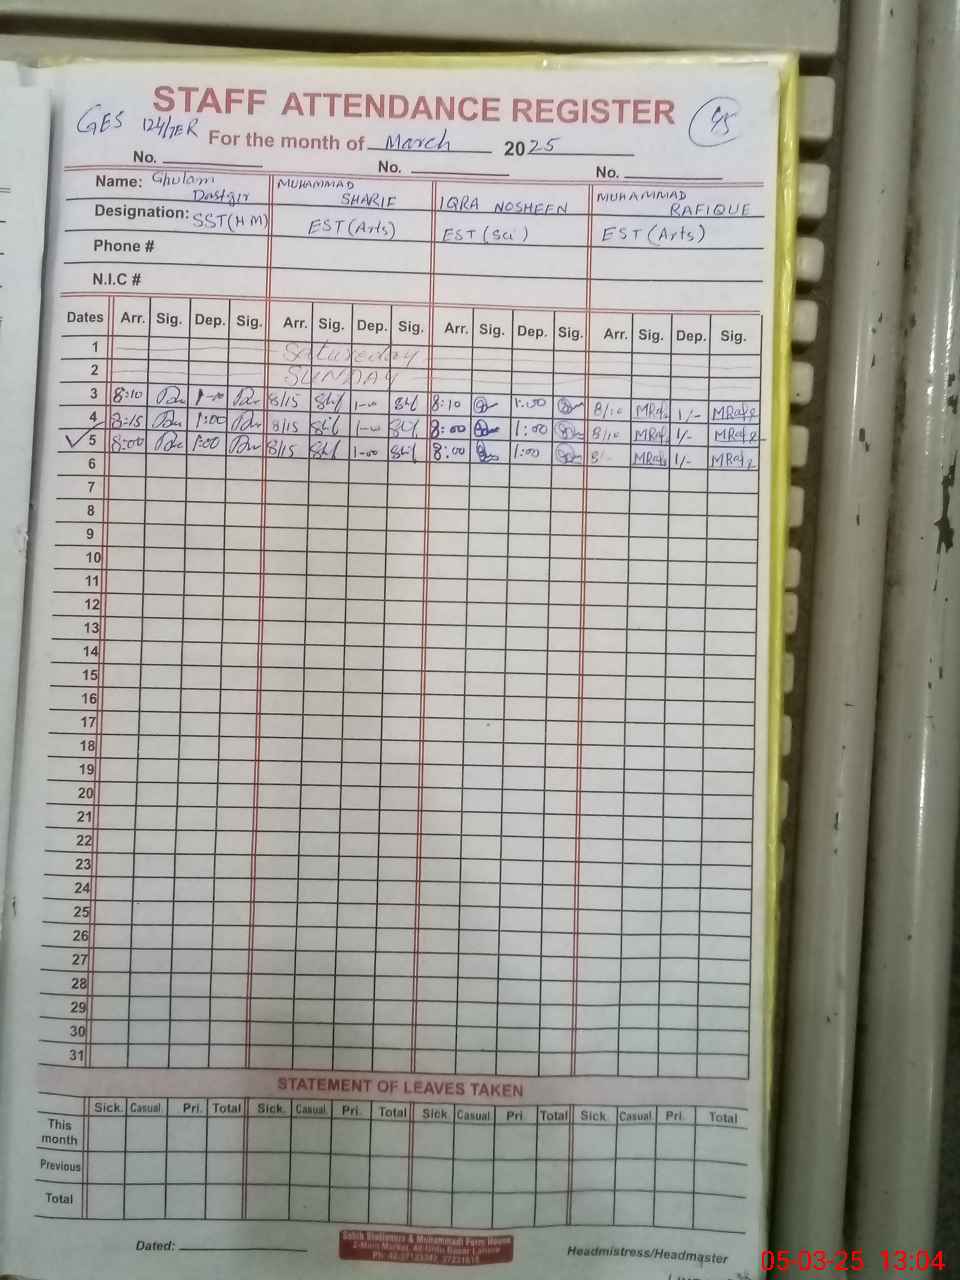 STAFF ATTENDANCE REGISTER 45
GES 124/7ER
For the month of March 2025
No. No. No.
Name: Ghulam Dastgir MUHAMMAD SHARIF IQRA NOSHEEN MUHAMMAD RAFIQUE
Designation: SST(HM) EST(Arts) EST(Sci) EST(Arts)
Phone #
N.I.C #
Dates Arr. Sig. Dep. Sig. Arr. Sig. Dep. Sig. Arr. Sig. Dep. Sig. Arr. Sig. Dep. Sig.
1 Satureday
2 SUNDAY
3 8:10 1-00 8/15 1-00 8:10 1:00 8/10 1/-
4 8:15 1:00 8/15 1-00 8:00 1:00 8/10 1/-
5 8:00 1:00 8/15 1-00 8:00 1:00 8/- 1/-
6
7
8
9
10
11
12
13
14
15
16
17
18
19
20
21
22
23
24
25
26
27
28
29
30
31
STATEMENT OF LEAVES TAKEN
Sick. Casual. Pri. Total Sick. Casual. Pri. Total Sick. Casual. Pri. Total Sick. Casual. Pri. Total
This month
Previous
Total
Dated: Headmistress/Headmaster
05-03-25 13:04